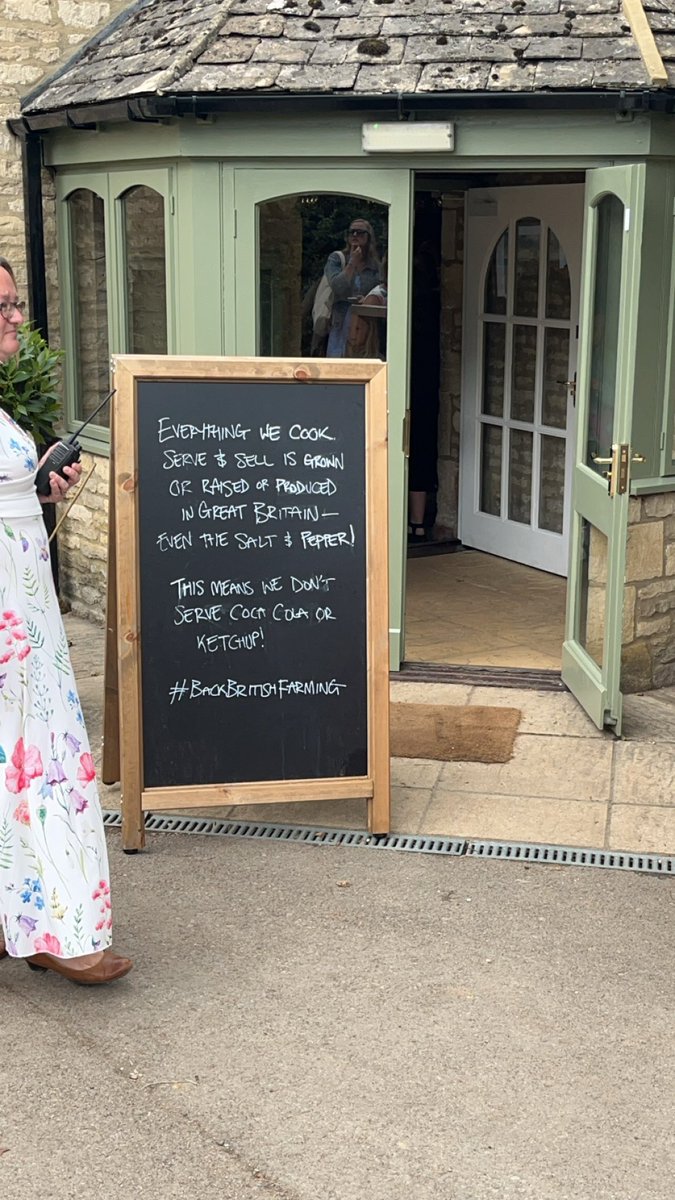 EVERYTHING WE COOK
SERVE & SELL IS GROWN
OR RAISED OR PRODUCED
IN GREAT BRITAIN –
EVEN THE SALT & PEPPER!
THIS MEANS WE DON'T
SERVE COCA COLA OR
KETCHUP!
#BACKBRITISHFARMING